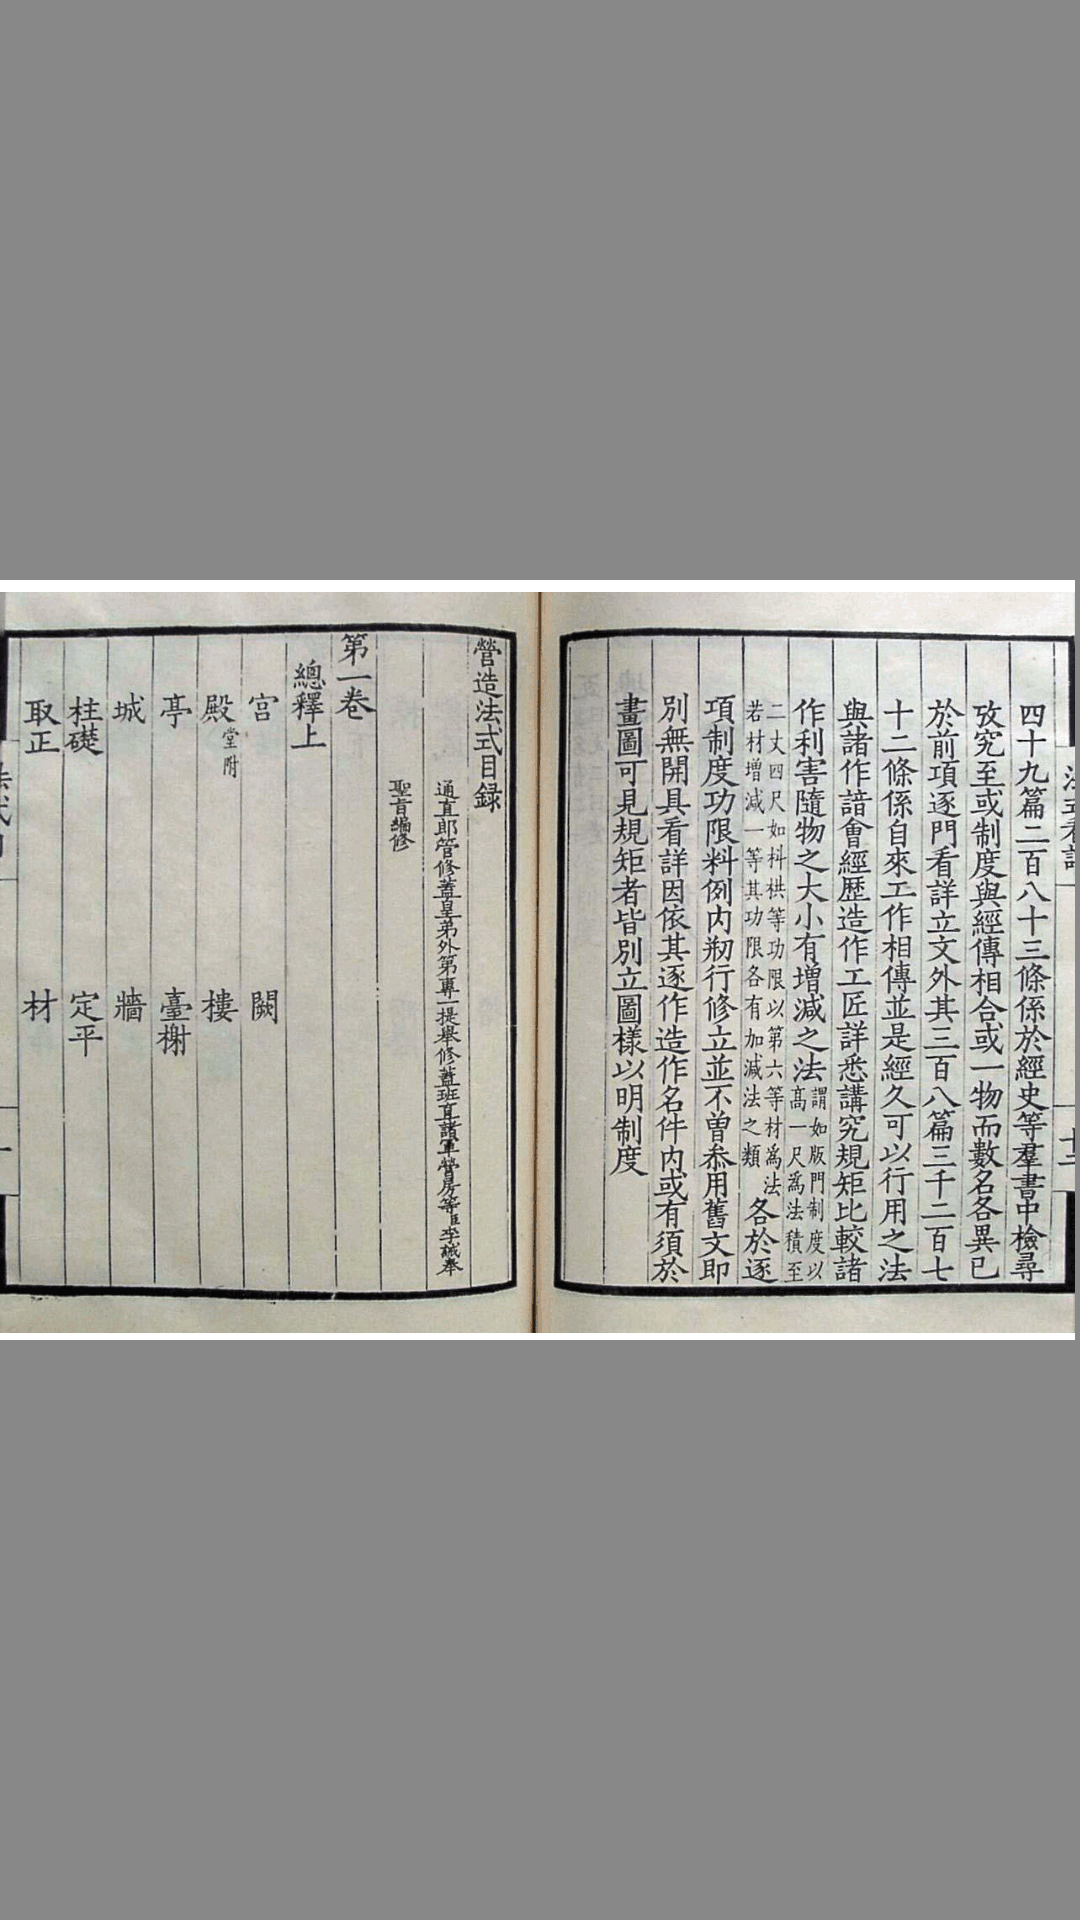 四十九篇二百八十三條係於經史等羣書中檢尋
攷究至或制度與經傳相合或一物而數名各異已
於前項逐門看詳立文外其三百八篇三千二百七
十二條係自來工作相傳並是經久可以行用之法
與諸作諳會經歷造作工匠詳悉講究規矩比較諸
作利害隨物之大小有增減之法謂如版門制度以高一尺爲法積至
二丈四尺如枓栱等功限以第六等材爲法若材增減一等其功限各有加減法之類各於逐
項制度功限料例內剏行修立並不曾叅用舊文即
別無開具看詳因依其逐作造作名件內或有須於
畫圖可見規矩者皆別立圖樣以明制度
營造法式目録
通直郎管修蓋皇弟外第專一提舉修蓋班直諸軍營房等臣李誡奉
聖旨編修
第一卷
總釋上
宮 闕
殿堂附 樓
亭 臺榭
城 牆
柱礎 定平
取正 材